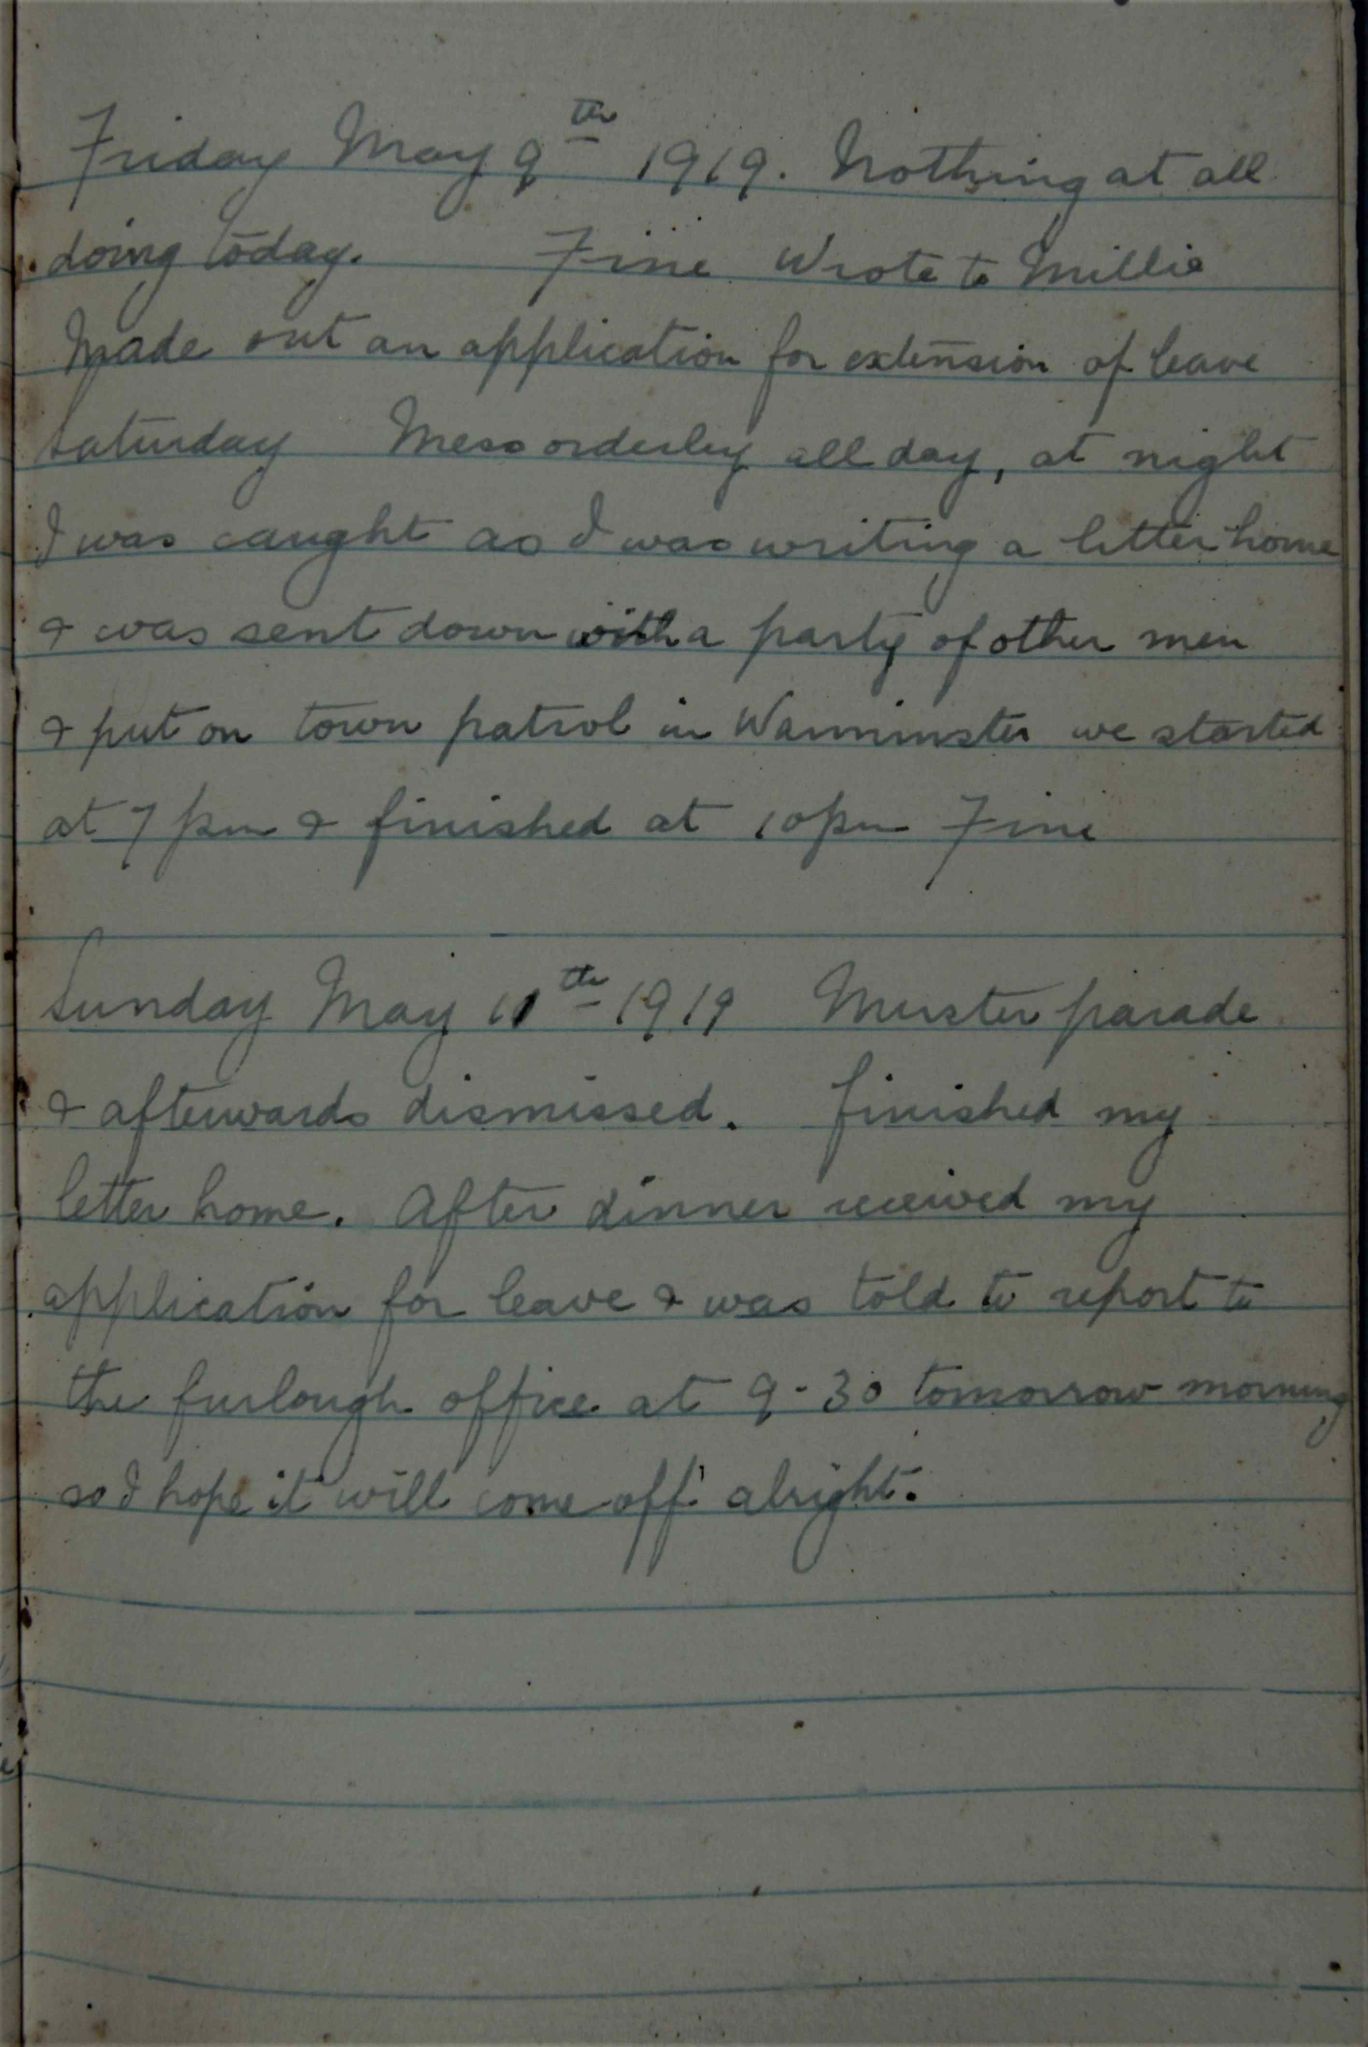 Friday May 9th 1919. Nothing at all
doing today. Fine Wrote to Millie
Made out an application for extension of leave
Saturday Mess orderley all day, at night
I was caught as I was writing a letter home
& was sent down with a party of other men
& put on town patrol in Warminster we started
at 7 pm & finished at 10 pm Fine
Sunday May 11th 1919 Muster parade
& afterwards dismissed. Finished my
letter home. After dinner received my
application for leave & was told to report to
the furlough office at 9-30 tomorrow morning
so I hope it will come off alright.